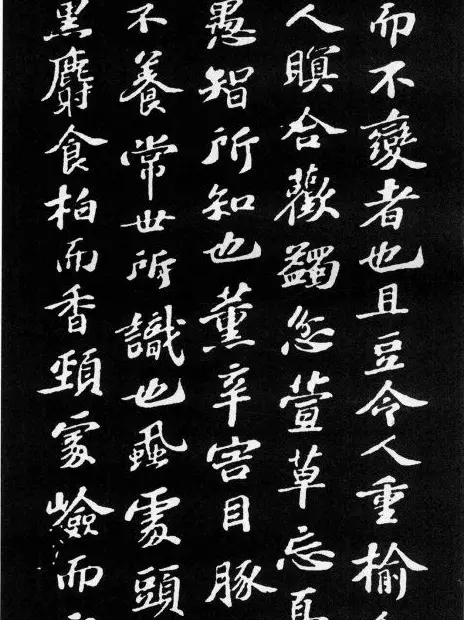 而不變者也且豆令人重榆
人瞑合歡蠲忿萱草忘
愚智所知也薰辛害目豚
不養常世所識也蝨處頭
黑麝食柏而香頸處嶮而